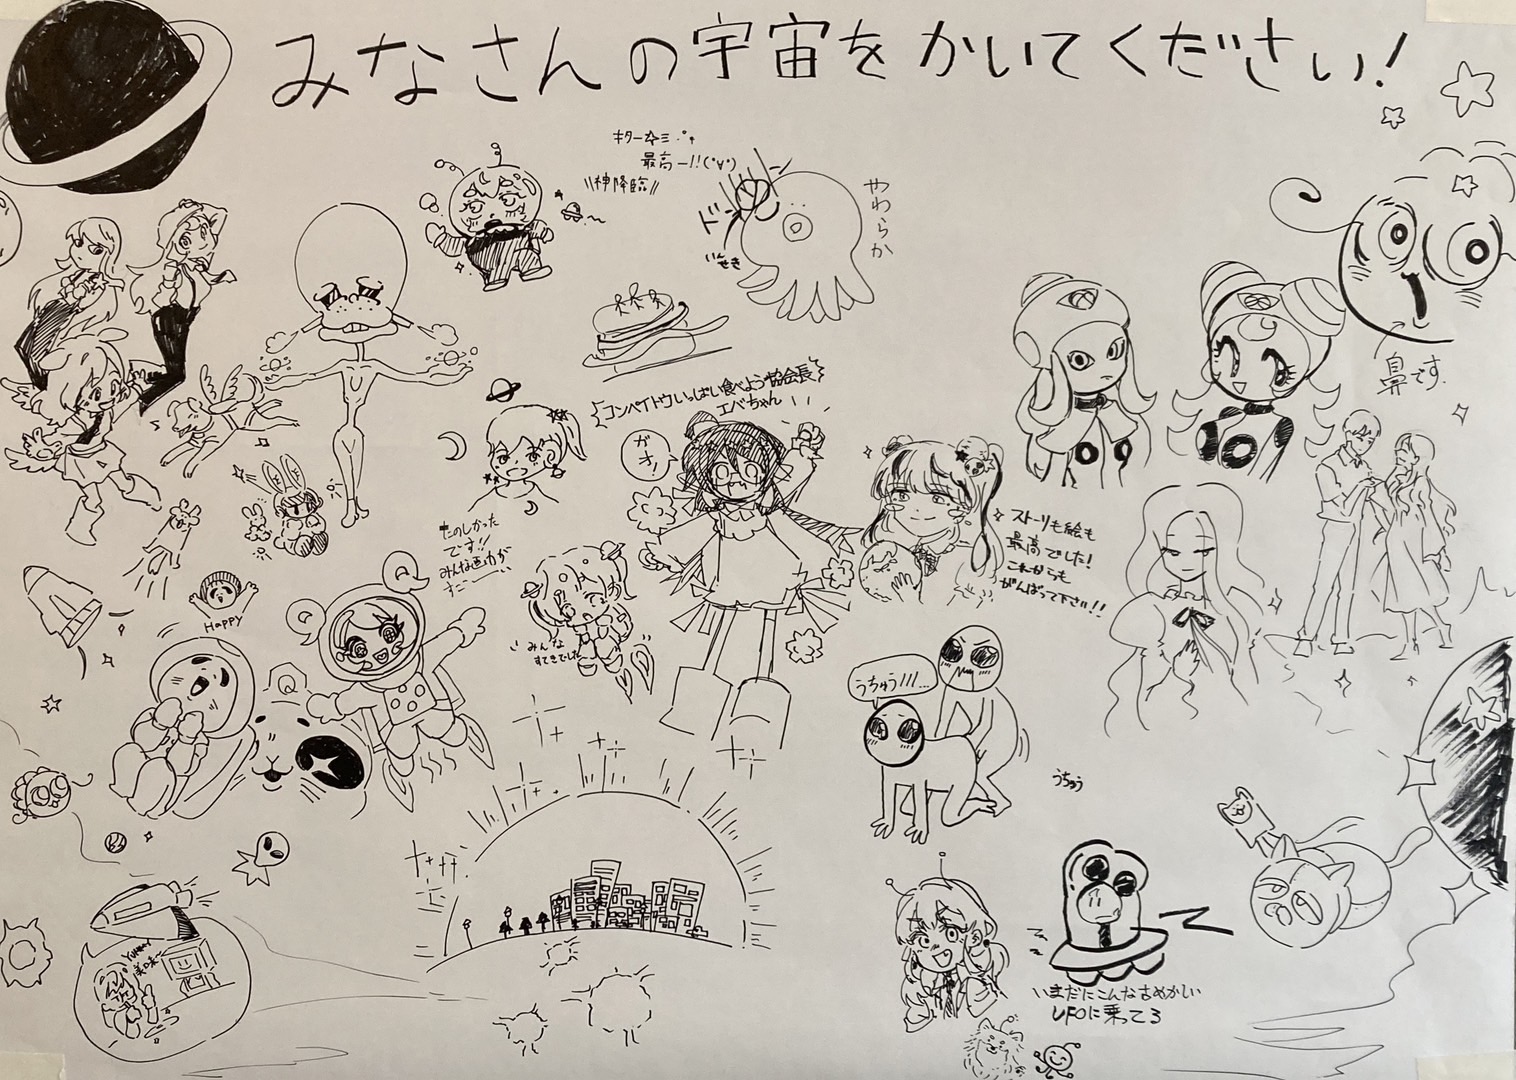 みなさんの宇宙をかいてください!
キター
最高ー!!(°∀°)
\\神降臨//
ドー
いんせき
やわらか
鼻です.
コンペイトウいっぱい食べよう協会長
エバちゃん
ガオ!
たのしかった
です!!
みんな画力が
すごー
みんな
すてきでした
ストーリも絵も
最高でした!
これからも
がんばって下さい!!
HAPPY
Q
Q
うちゅう///...
うちゅう
YUMMY
美味
いまだにこんな古めかしい
UFOに乗ってる